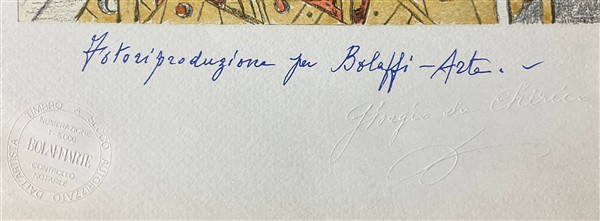 Fotoriproduzione per Bolaffi-Arte.
Giorgio de Chirico
TIMBRO A SECCO AUTORIZZATO DALL'ARTISTA
NUMERAZIONE
1-5.000
BOLAFFIARTE
CONTROLLO
NOTARILE